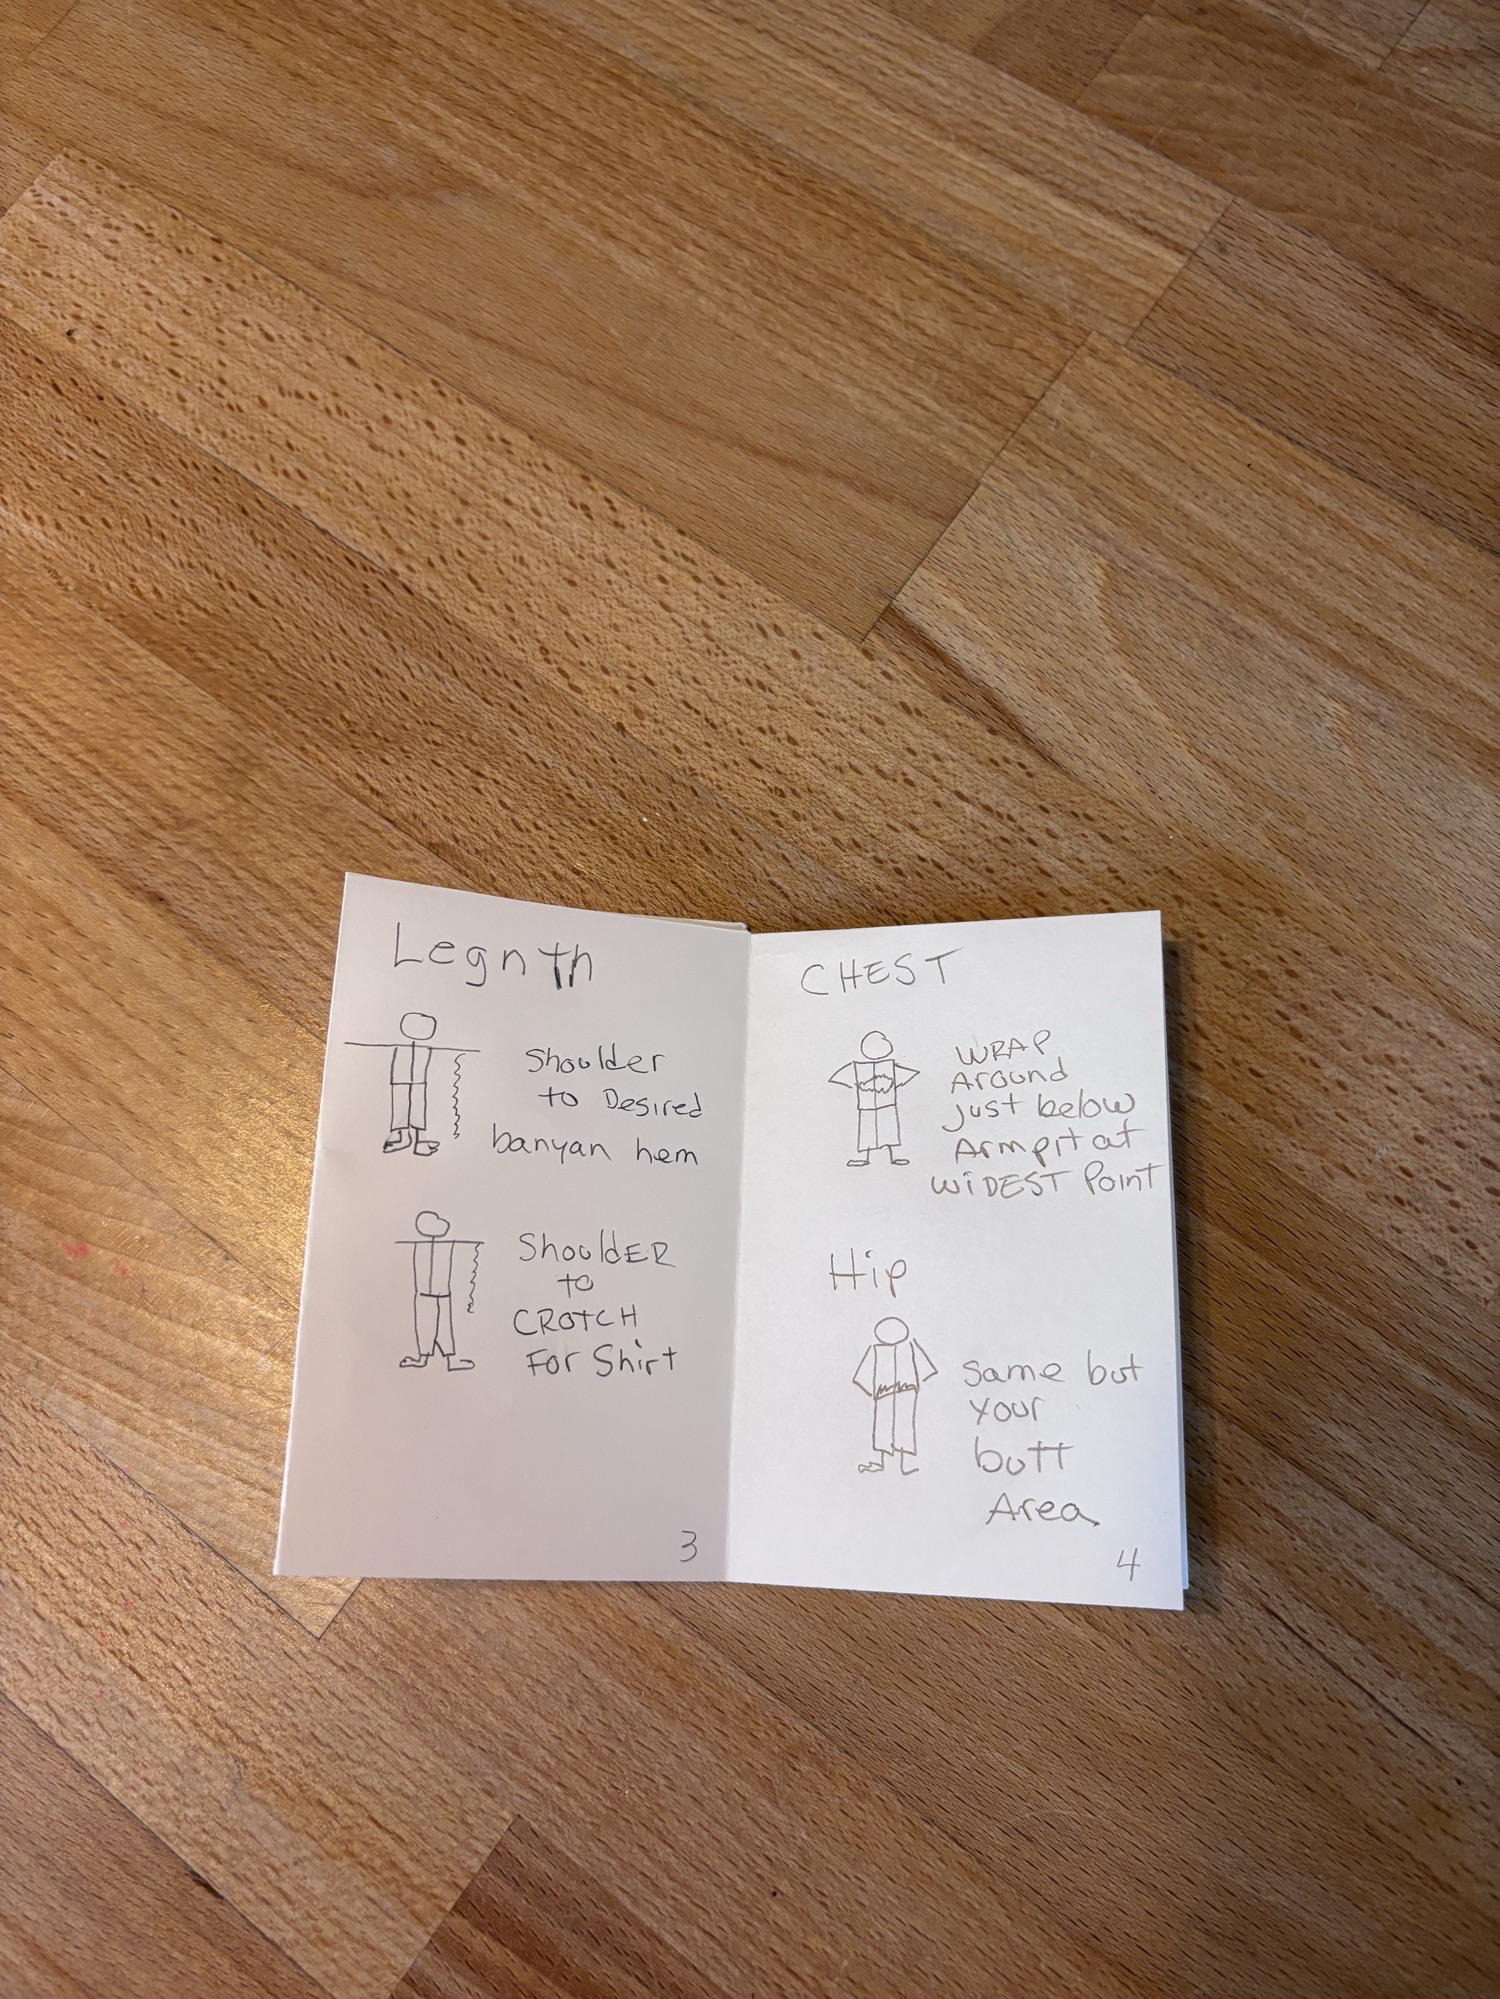 Legnth
Shoulder
to Desired
banyan hem
ShoulDER
to
CROTCH
For Shirt
3
CHEST
WRAP
Around
just below
Armpit at
WiDEST Point
Hip
Same but
your
butt
Area
4